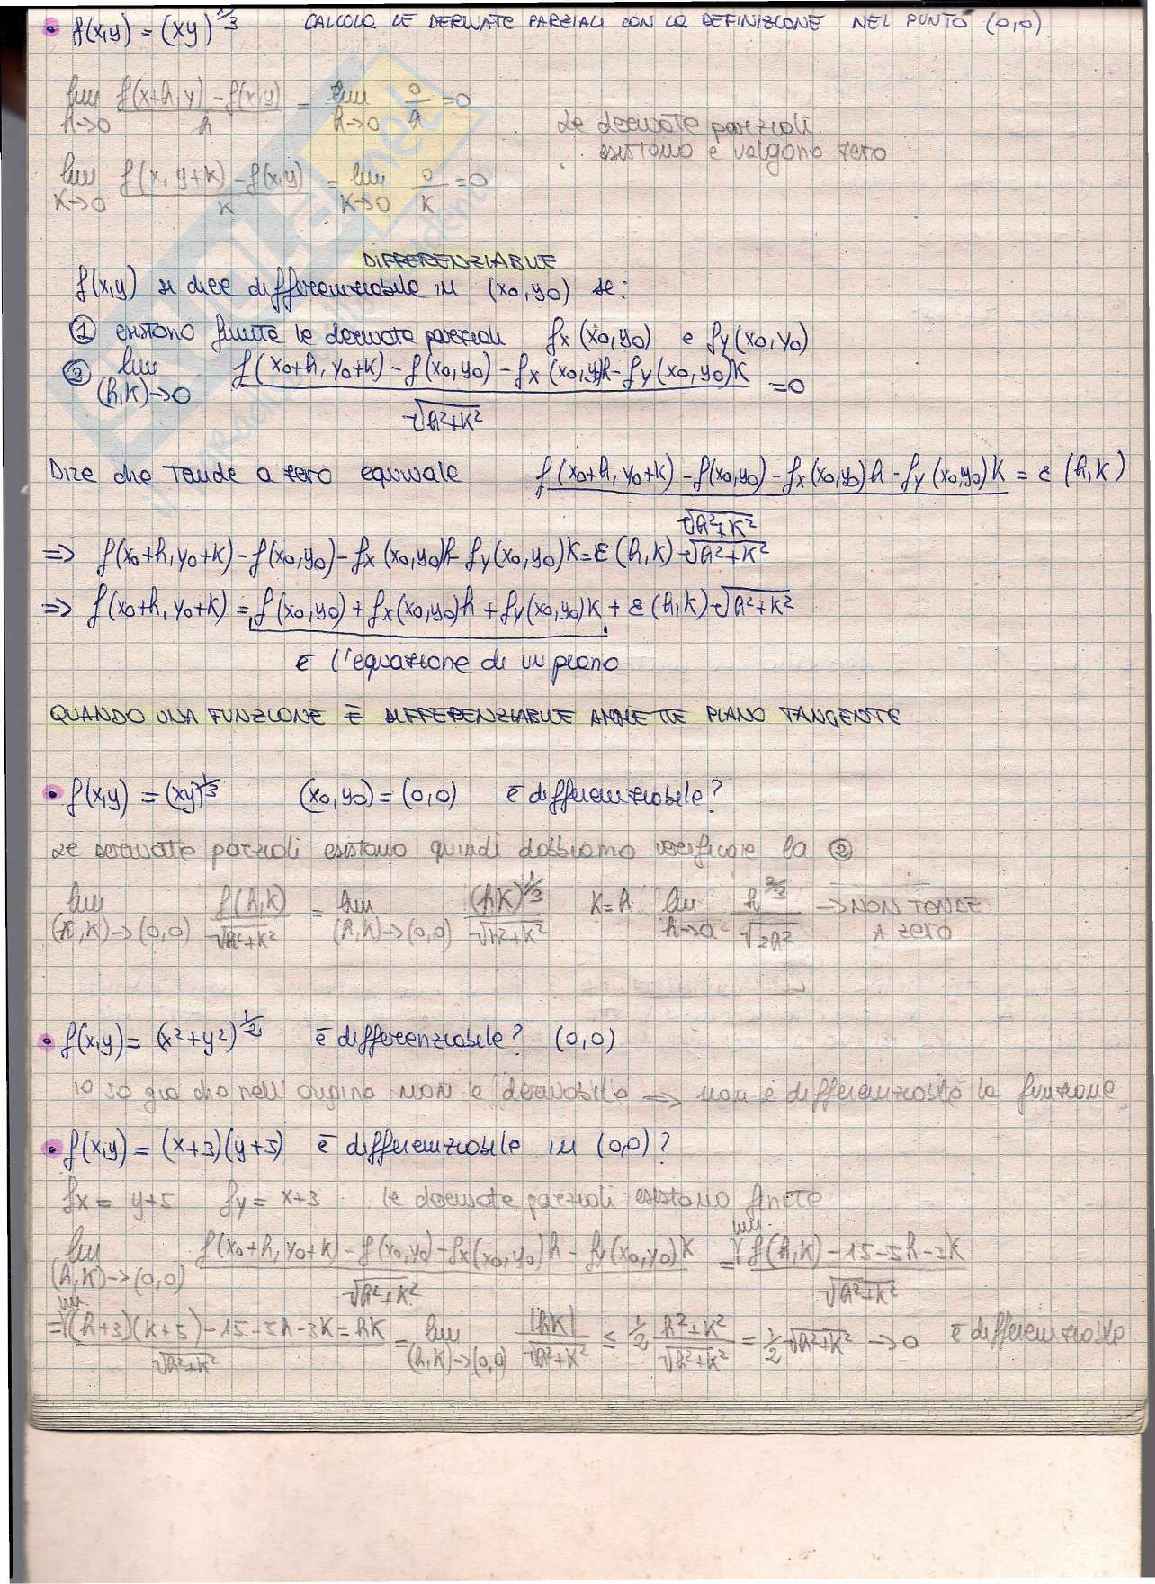 • f(x,y) = (xy)^1/3 CALCOLO LE DERIVATE PARZIALI CON LA DEFINIZIONE NEL PUNTO (0,0)
lim h→0 f(x+h,y) - f(x,y) / h = lim h→0 0/h = 0
Le derivate parziali
esistono e valgono zero
lim k→0 f(x, y+k) - f(x,y) / k = lim k→0 0/k = 0
DIFFERENZIABILE
f(x,y) si dice differenziabile in (x0,y0) se:
① esistono finite le derivate parziali fx (x0,y0) e fy (x0,y0)
② lim (h,k)→0 f(x0+h, y0+k) - f(x0,y0) - fx (x0,y0)h - fy (x0,y0)k / √h²+k² = 0
Dire che tende a zero equivale f(x0+h, y0+k) - f(x0,y0) - fx(x0,y0)h - fy(x0,y0)k / √h²+k² = ε (h,k)
=> f(x0+h, y0+k) - f(x0,y0) - fx (x0,y0)h - fy (x0,y0)k = ε (h,k) √h²+k²
=> f(x0+h, y0+k) = f(x0,y0) + fx(x0,y0)h + fy(x0,y0)k + ε (h,k) √h²+k²
È l'equazione di un piano
QUANDO UNA FUNZIONE È DIFFERENZIABILE AMMETTE PIANO TANGENTE
• f(x,y) = (xy)^1/3 (x0,y0) = (0,0) è differenziabile?
Le derivate parziali esistono quindi dobbiamo verificare la ②
lim (h,k)→(0,0) f(h,k) / √h²+k² = lim (h,k)→(0,0) (hk)^1/3 / √h²+k² k=h lim h→0 h^2/3 / √2h² → NON TENDE
A ZERO
• f(x,y) = (x²+y²)^1/2 è differenziabile? (0,0)
io so già che nell'origine non è derivabile => non è differenziabile la funzione
• f(x,y) = (x+3)(y+5) è differenziabile in (0,0)?
fx = y+5 fy = x+3 le derivate parziali esistono finite
lim (h,k)→(0,0) f(x0+h, y0+k) - f(x0,y0) - fx(x0,y0)h - fy(x0,y0)k / √h²+k² = lim f(h,k) - 15 - 5h - 3k / √h²+k²
= lim (h+3)(k+5) - 15 - 5h - 3k = hk / √h²+k² = lim (h,k)→(0,0) |hk| / √h²+k² ≤ 1/2 h²+k² / √h²+k² = 1/2 √h²+k² → 0 è differenziabile